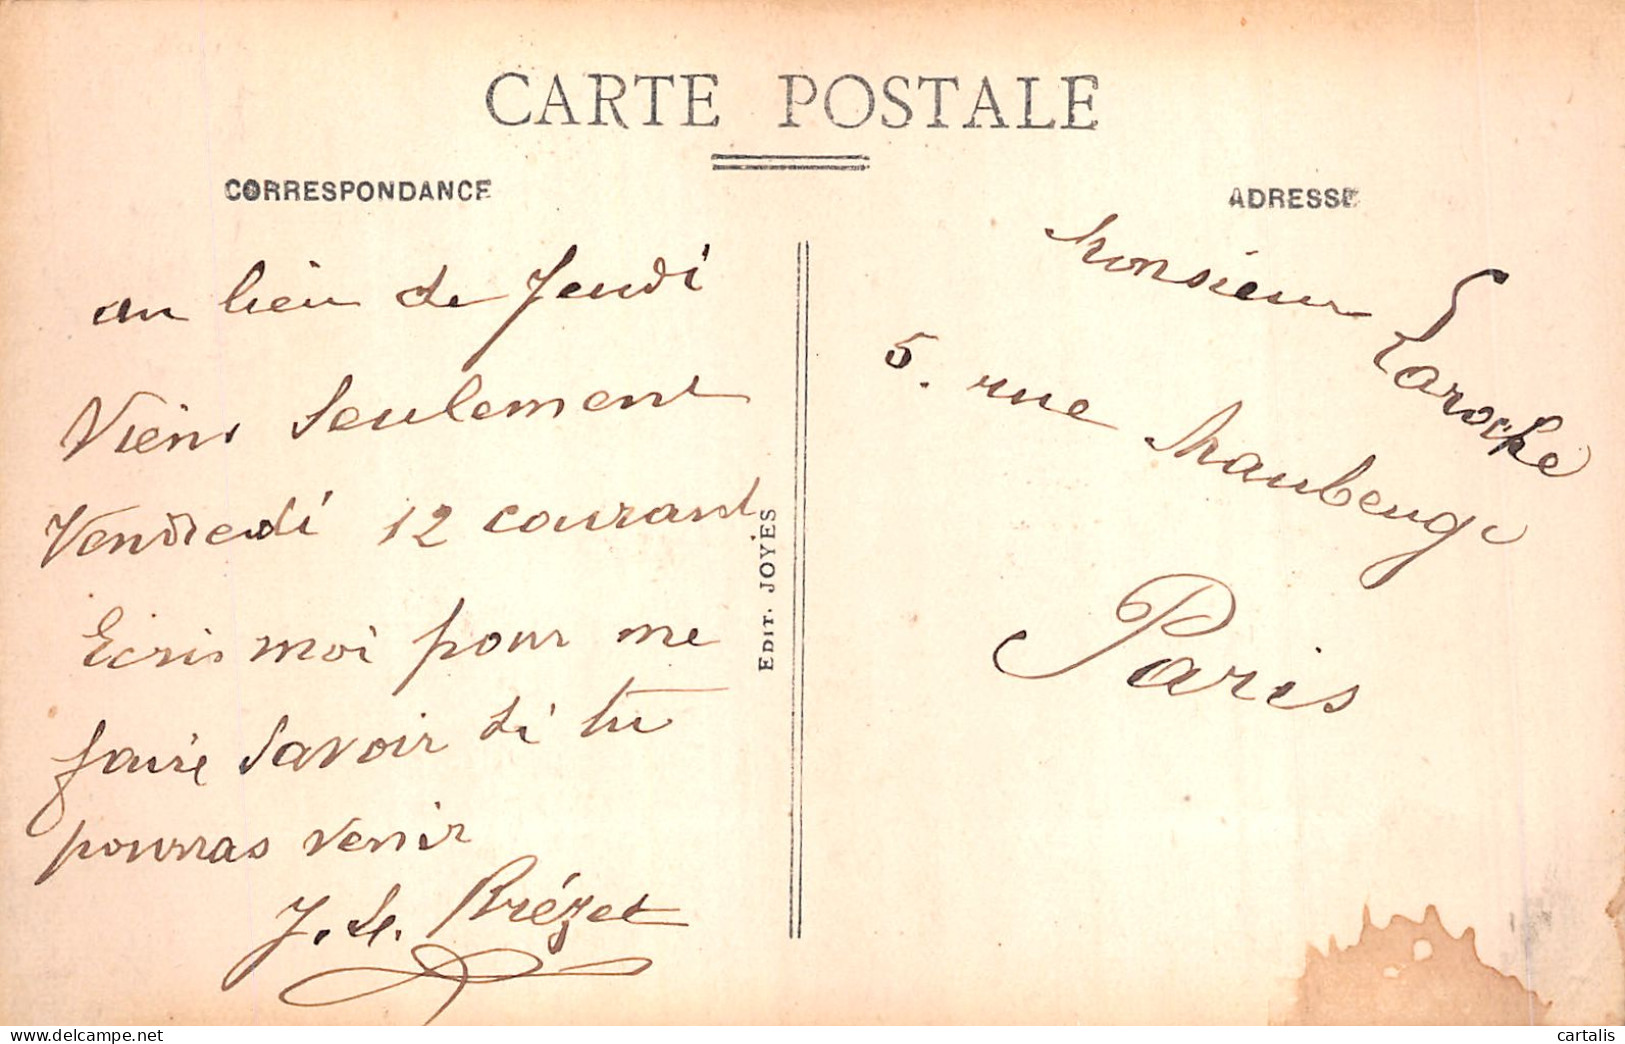 CARTE POSTALE
CORRESPONDANCE
au lieu de Jeudi
Viens seulement
Vendredi 12 courant
Ecris moi pour me
faire savoir si tu
pourras venir
EDIT. JOYES
ADRESSE
Monsieur Laroche
5. rue Maubeuge
Paris
cartalis